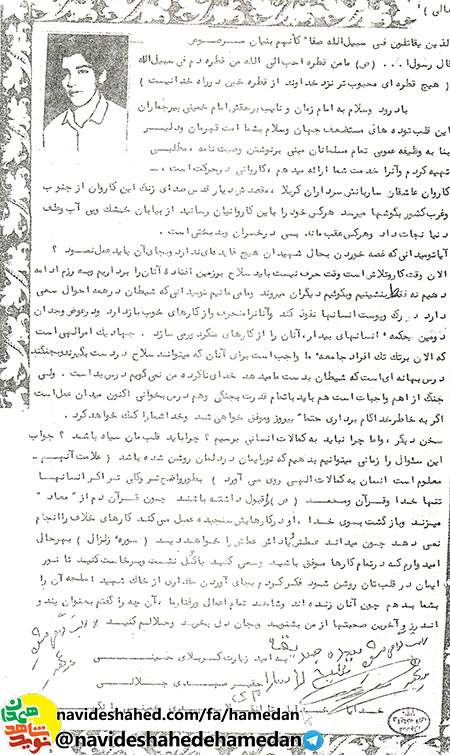 الذین یقاتلون فی سبیل‌الله صفا" کأنهم بنیان مرصوص
قال رسول‌ا... (ص) مامن قطره احب‌الی الله من قطره دم فی سبیل‌الله
(هیچ قطره ای محبوب‌تر نزد خداوند از قطره خون درراه خدانیست)
بادرود وسلام به امام زمان و نایب برحقش امام خمینی پیرجماران
این قلب توده هاي مستضعف جهان وسلام بشما امت قهرمان ودلیر
بنا به وظیفه عمومی تمام مسلمانان مبنی برنوشتن وصیت نامه ، مطلبی
تهیه کردم وآنرا خدمت شما ارائه میدهم ، کاروانی درحرکت است ...
کاروان عاشقان ساربانش سرداران کربلا ، مقصدش دیار قدس صدای زنگ این کاروان از جنوب
وغرب کشور بگوشها میرسد هرکس خود را باین کاروانیان رسانید از بیابان خشک وبی آب وعلف
دنیا نجات داد وهرکس عقب ماند پس در خسران وبدبختی است .
آیا تومیدانی که غصه خوردن بحال شهیدان هیچ فایده‌ای‌ندارد وبجای آن باید عمل‌نمود ؟
الان وقت کاروتلاش است وقت حرف نیست باید سلاح برزمین افتاده آنان را برداریم وبه رزم ادامه
دهیم نه فقط بنشینیم وبگوئیم دیگران میروند ومامی مانیم تومیدانی که شیطان درهمه احوال سعی
دارد در رگ وپوست انسانها نفوذ کند وآنانرا منحرف وازکارهای خوب بازدارد ودرعوض وجدان
دومین محکمه انسانهای بیدار، آنان را از کارهای منکر دورمی سازد . جهاد یک امرالهی است
که الان برتک تک افراد جامعه ما واجب است برای آنان که میتوانند سلاح دردست بگیرندوبجنگند
درس بهانه ای‌است که شیطان بدست ما میدهد خدای‌ناکرده من نمی گویم درس بد است . ولی
جنگ از اهم واجبات است هم باید باتمام قدرت بجنگی وهم درس بخوانی اکنون میدان عمل‌است
اگر به خاطر خدا گام برداری حتما" پیروز وموفق خواهی شد وخدا شمارا کمک خواهد کرد .
سخن دیگر ، واما چرا نباید به کمالات انسانی برسیم ؟ چراباید قلب مان سیاه باشد ؟ جواب
این سئوال را زمانی میتوانیم بدهیم که نور ایمان دردلمان روشن شده باشد (علامت آنهم ـ
معلوم است انسان به کمالات الهی روی می آورد) بطورواضح‌تر وکلی تر اگر انسانها
تنها خدا وقرآن ومحمد (ص) راقبول داشته باشند چون قرآن دم از " معاد "
میزند وبازگشت بسوی خدا ، او درکارهایش سنجیده عمل می‌کند کارهای خلاف راانجام
نمی دهد چون میداند عملش پاداش عملش را خواهددید (سوره زلزال) بهرحال
امیدوارم که درتمام کارها موفق باشید وسعی کنید باگل نشست وبرخاست کنید تا نور
ایمان در قلب‌تان روشن شود فکر کردم بجای آوردن مقداری از خاک شهید اسلحه آن را
بشما بدهم چون آنان زنده اند وشاهد تمام اعمال ورفتارما ، آن چه را گفتم بعنوان پند و
اندرز و آخرین صحبتها از من بشنوید وبجان دل بخرید وحلالم کنید
به امید زیارت کربلای حسینی
حقیر مهدی جلالی
navideshahed.com/fa/hamedan
@navideshahedehamedan
نوید شاهد
همدان